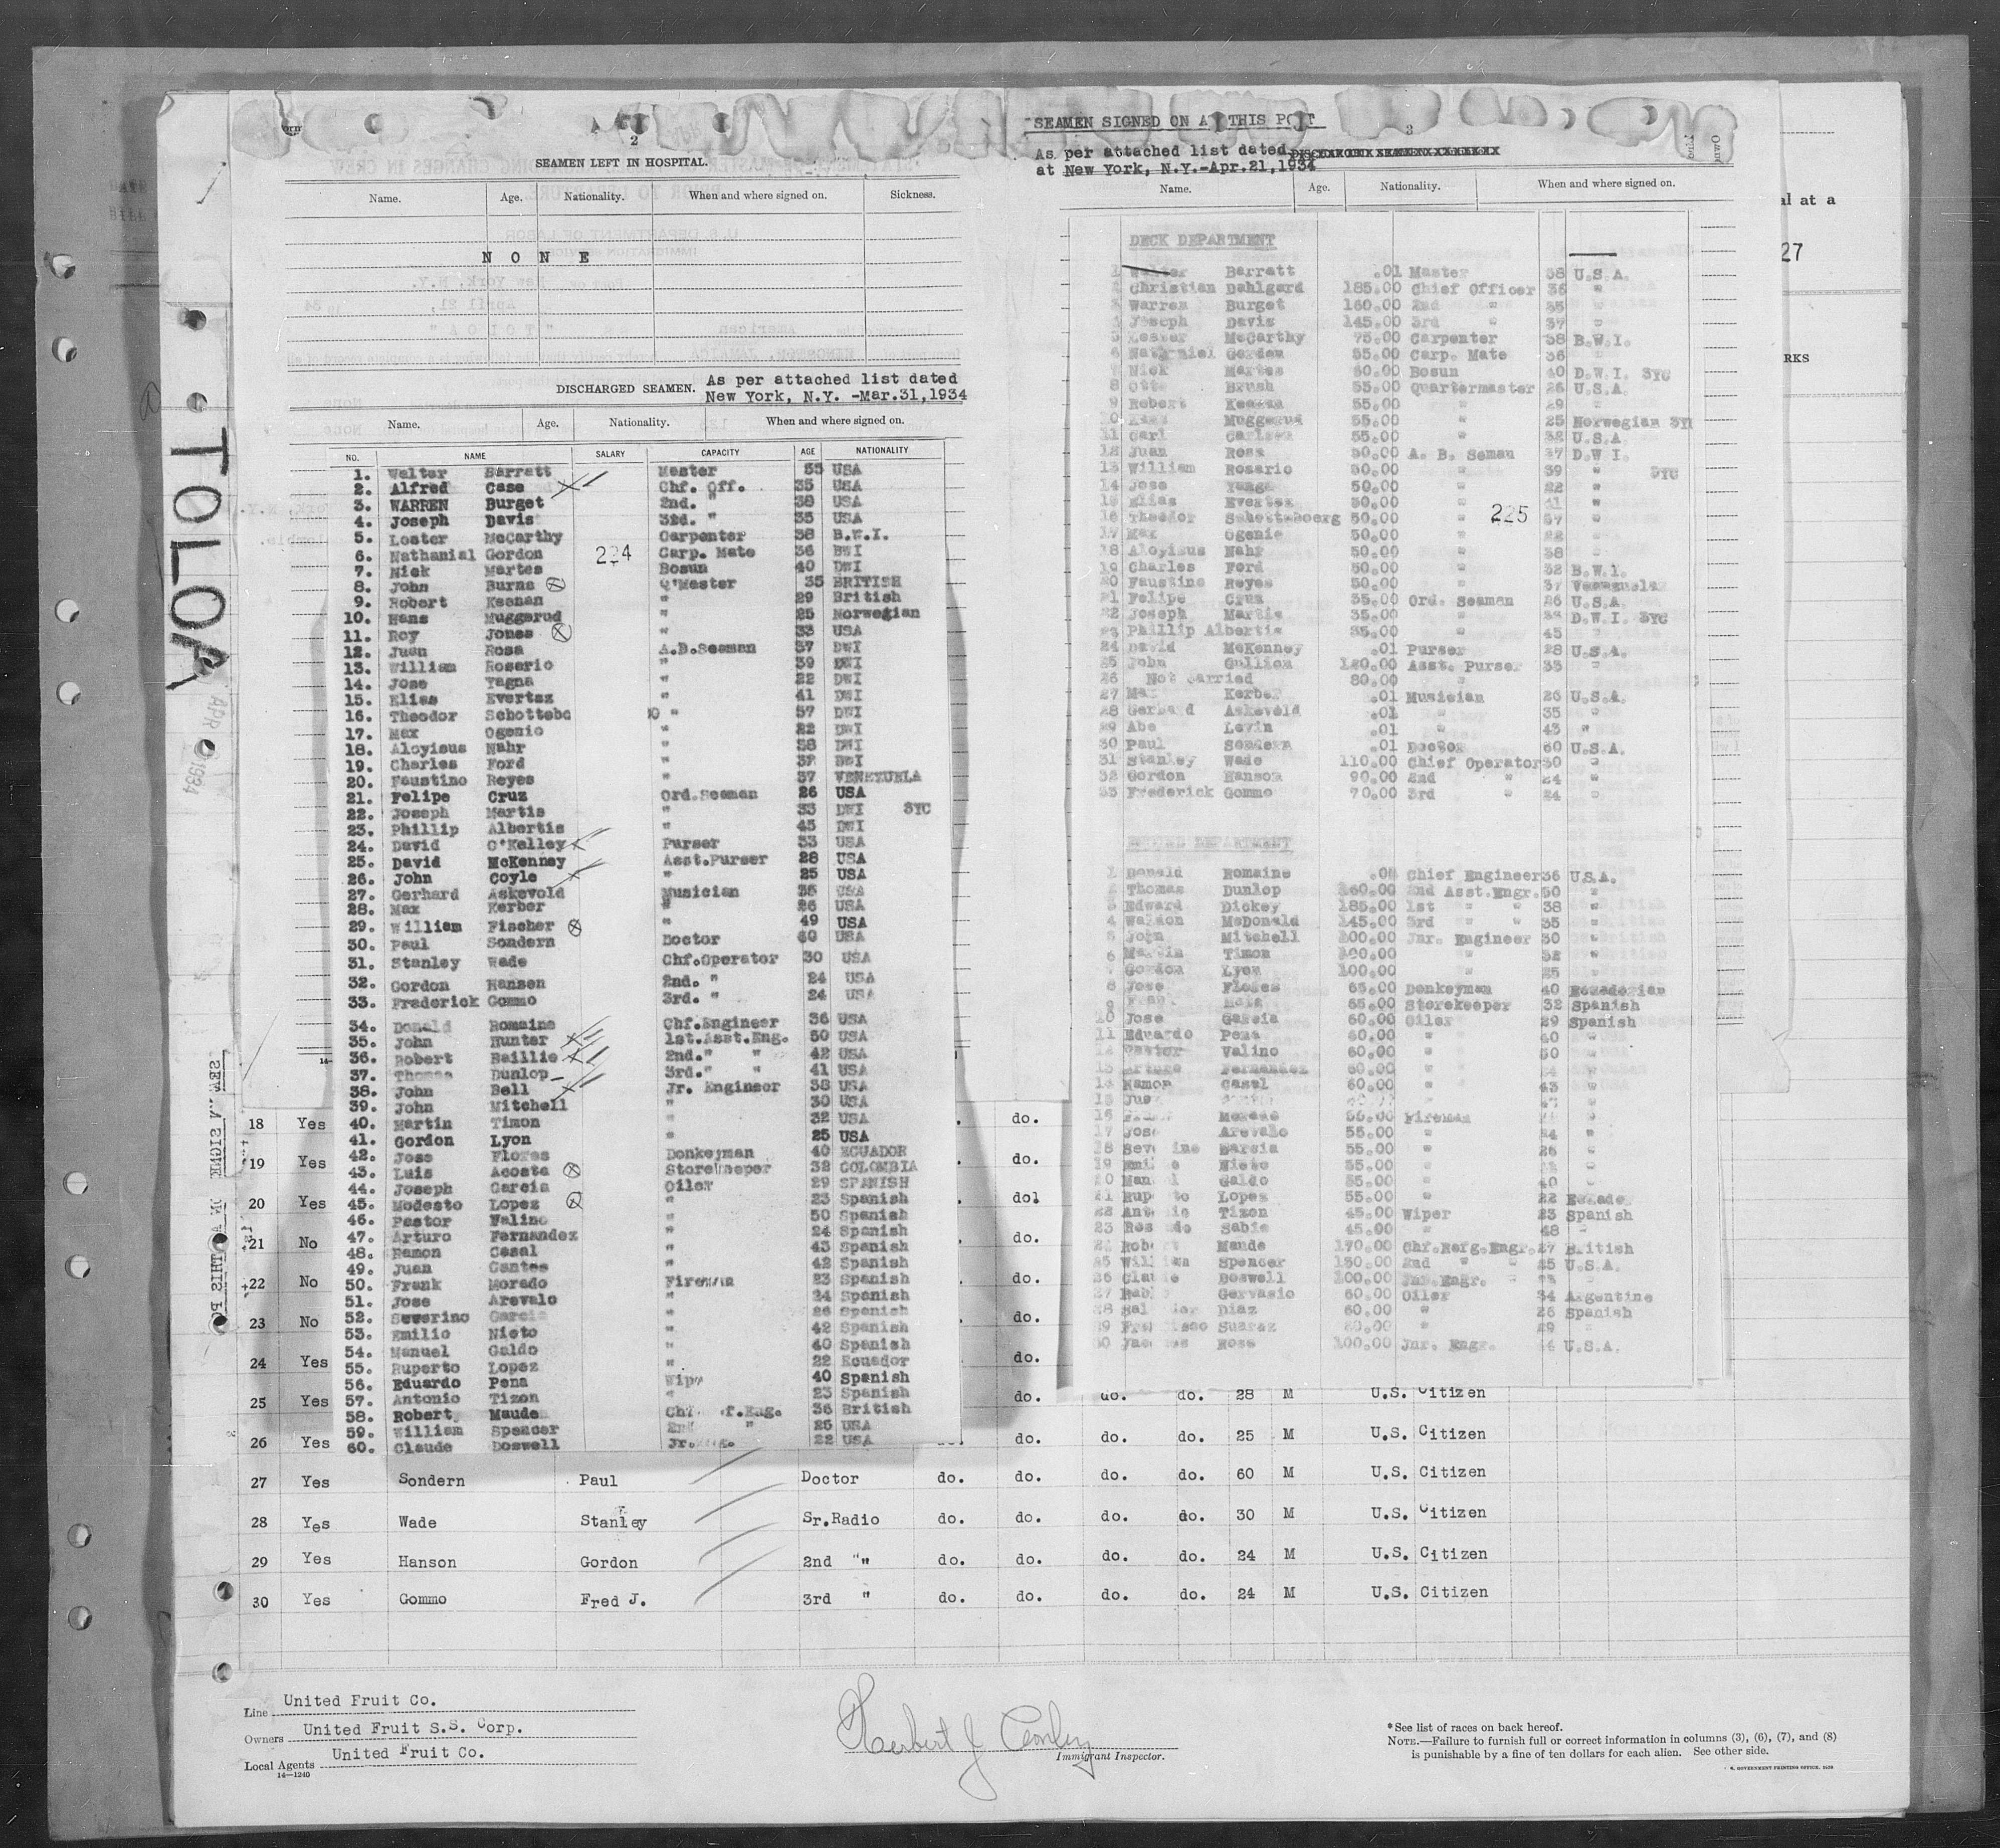 TOLOA
APR 1934
2
SEAMEN LEFT IN HOSPITAL.
Name. Age. Nationality. When and where signed on. Sickness.
N O N E
DISCHARGED SEAMEN. As per attached list dated
New York, N.Y. -Mar.31,1934
Name. Age. Nationality. When and where signed on.
NO. NAME SALARY CAPACITY AGE NATIONALITY
1. Walter Barratt Master 35 USA
2. Alfred Case Chf. Off. 35 USA
3. WARREN Burget 2nd. " 38 USA
4. Joseph Davis 3rd. " 35 USA
5. Lester McCarthy Carpenter 38 B.W.I.
6. Nathanial Gordon 224 Carp. Mate 36 BWI
7. Nick Martes Bosun 40 DWI
8. John Burns Q'Master 35 BRITISH
9. Robert Keenan " 29 British
10. Hans Muggerud " 25 Norwegian
11. Roy Jones " 33 USA
12. Juan Rosa A.B.Seaman 37 DWI
13. William Rosario " 39 DWI
14. Jose Yagna " 22 DWI
15. Elias Evertsz " 41 DWI
16. Theodor Schottebo " 57 DWI
17. Max Ogenio " 22 DWI
18. Aloyisus Nahr " 38 DWI
19. Charles Ford " 32 DWI
20. Faustino Reyes " 37 VENEZUELA
21. Felipe Cruz Ord.Seaman 26 USA
22. Joseph Martis " 33 DWI SYC
23. Phillip Albertis " 45 DWI
24. David O'Kelley Purser 33 USA
25. David McKenney Asst.Purser 28 USA
26. John Coyle " 25 USA
27. Gerhard Askevold Musician 35 USA
28. Max Kerber " 26 USA
29. William Fischer " 49 USA
30. Paul Sondern Doctor 60 USA
31. Stanley Wade Chf.Operator 30 USA
32. Gordon Hansen 2nd. " 24 USA
33. Frederick Gommo 3rd. " 24 USA
34. Donald Romaine Chf.Engineer 36 USA
35. John Hunter 1st.Asst.Eng. 50 USA
36. Robert Baillie 2nd." " 42 USA
37. Thomas Dunlop 3rd." " 41 USA
38. John Bell Jr. Engineer 38 USA
39. John Mitchell " 30 USA
40. Martin Timon " 32 USA
41. Gordon Lyon " 25 USA
42. Jose Flores Donkeyman 40 ECUADOR
43. Luis Acosta Storekeeper 32 COLOMBIA
44. Joseph Garcia Oiler 29 SPANISH
45. Modesto Lopez " 23 Spanish
46. Pastor Valino " 50 Spanish
47. Arturo Fernandez " 24 Spanish
48. Ramon Casal " 43 Spanish
49. Juan Cantes " 42 Spanish
50. Frank Morado Fireman 23 Spanish
51. Jose Arevalo " 24 Spanish
52. Severino Garcia " 26 Spanish
53. Emilio Nieto " 42 Spanish
54. Manuel Galdo " 40 Spanish
55. Ruperto Lopez " 22 Ecuador
56. Eduardo Pena Wip 40 Spanish
57. Antonio Tizon " 23 Spanish
58. Robert Maude Chf f.Eng. 36 British
59. William Spencer 2nd " 25 USA
60. Claude Doswell Jr. 22 USA
SEAMEN SIGNED ON AT THIS PORT
3
As per attached list dated
at New York, N.Y.-Apr.21,1934
Name. Age. Nationality. When and where signed on.
DECK DEPARTMENT
1 Walter Barratt .01 Master 38 U.S.A.
2 Christian Dahlgard 185.00 Chief Officer 36 "
3 Warren Burget 160.00 2nd " 35 "
4 Joseph Davis 145.00 3rd " 37 "
5 Lester McCarthy 75.00 Carpenter 38 B.W.I.
6 Nathaniel Gordon 55.00 Carp. Mate 36 "
7 Nick Martes 60.00 Bosun 40 D.W.I. SYC
8 Otto Brush 55.00 Quartermaster 26 U.S.A.
9 Robert Keenan 55.00 " 29 "
10 Hans Muggerud 55.00 " 25 Norwegian SYC
11 Carl Carlsen 55.00 " 32 U.S.A.
12 Juan Rosa 50.00 A. B. Seman 37 D.W.I.
13 William Rosario 50.00 " 39 " SYC
14 Jose Yanga 50.00 " 22 "
15 Elias Evertsz 50.00 " 41 "
16 Theodor Schottenboerg 50.00 " 225 57 "
17 Max Ogenio 50.00 " 22 "
18 Aloyisus Nahr 50.00 " 38 "
19 Charles Ford 50.00 " 32 B.W.I.
20 Faustino Reyes 50.00 " 37 Venezuela
21 Felipe Cruz 35.00 Ord. Seaman 26 U.S.A.
22 Joseph Martis 35.00 " D.W.I. SYC
23 Phillip Albertis 35.00 " 45 "
24 David McKenney .01 Purser 28 U.S.A.
25 John Gullion Asst. Purser 35 "
26 Not Carried 80.00 "
27 Max Kerber .01 Musician 26 U.S.A.
28 Gerhard Askevold .01 " 35 "
29 Abe Levin .01 " 43 "
30 Paul Sondern .01 Doctor 60 U.S.A.
31 Stanley Wade 110.00 Chief Operator 30 "
32 Gordon Hanson 90.00 2nd " 24 "
33 Frederick Gommo 70.00 3rd " 24 "
ENGINE DEPARTMENT
1 Donald Romaine .01 Chief Engineer 36 U.S.A.
2 Thomas Dunlop 160.00 2nd Asst.Engr. 50 "
3 Edward Dickey 185.00 1st " " 38 "
4 Waldon McDonald 145.00 3rd " " 35 "
5 John Mitchell 100.00 Jnr. Engineer 30 "
6 Martin Timon 100.00 " 32 "
7 Gordon Lyon 100.00 " 25 "
8 Jose Flores 65.00 Donkeyman 40 Ecuadorian
9 65.00 Storekeeper 32 Spanish
10 Jose Garcia 60.00 Oiler 29 Spanish
11 Eduardo Pena 60.00 " 40 "
12 Pastor Valino 60.00 " 50 "
13 Arturo Fernandez 60.00 " 24 "
14 Ramon Casal 60.00 " 43 "
15 "
16 Morado 55.00 Fireman "
17 Jose Arevalo 55.00 " 24 "
18 Seve ine Garcia 55.00 " 26 "
19 Emil o Nieto 55.00 " "
20 Man l Galdo 55.00 " 40 "
21 Rup to Lopez 55.00 " 22 Ecuador
22 Ant io Tizon 45.00 Wiper 23 Spanish
23 Ros do Sabin 45.00 " 48 "
24 Rob t Maude 170.00 Chf.Refg.Engr. 27 British
25 Will m Spencer 130.00 2nd " " 25 U.S.A.
26 Clau e Doswell 100.00 Jnr.Engr. " "
27 Pabl Gervasio 60.00 Oiler 34 Argentine
28 Sal dor Diaz 60.00 " 26 Spanish
29 Fran isco Suarez 60.00 " 29 "
30 Ross 100.00 Jnr. Engr. U.S.A.
al at a
27
RKS
18 Yes do.
19 Yes do.
20 Yes do.
21 No do.
22 No do.
23 No do.
24 Yes do.
25 Yes do. do. do. 28 M U.S. Citizen
26 Yes do. do. do. do. 25 M U.S. Citizen
27 Yes Sondern Paul Doctor do. do. do. do. 60 M U.S. Citizen
28 Yes Wade Stanley Sr.Radio do. do. do. do. 30 M U.S. Citizen
29 Yes Hanson Gordon 2nd " do. do. do. do. 24 M U.S. Citizen
30 Yes Gommo Fred J. 3rd " do. do. do. do. 24 M U.S. Citizen
Line United Fruit Co.
Owners United Fruit S.S. Corp.
Local Agents United Fruit Co.
14—1240
Herbert J
Immigrant Inspector.
*See list of races on back hereof.
NOTE.—Failure to furnish full or correct information in columns (3), (6), (7), and (8)
is punishable by a fine of ten dollars for each alien. See other side.
GOVERNMENT PRINTING OFFICE